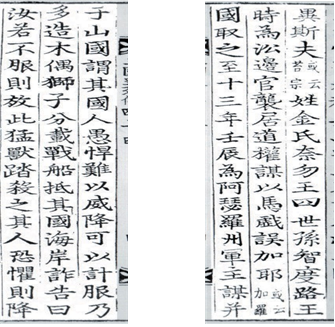 異斯夫或云苔宗姓金氏奈勿王四世孫智度路王
時為㳂邊官襲居道權謀以馬戲誤加耶或云加羅
國取之至十三年壬辰為阿瑟羅州軍主謀并
于山國謂其國人愚悍難以威降可以計服乃
多造木偶獅子分載戰船抵其國海岸詐告曰
汝若不服則放此猛獸踏殺之其人恐懼則降